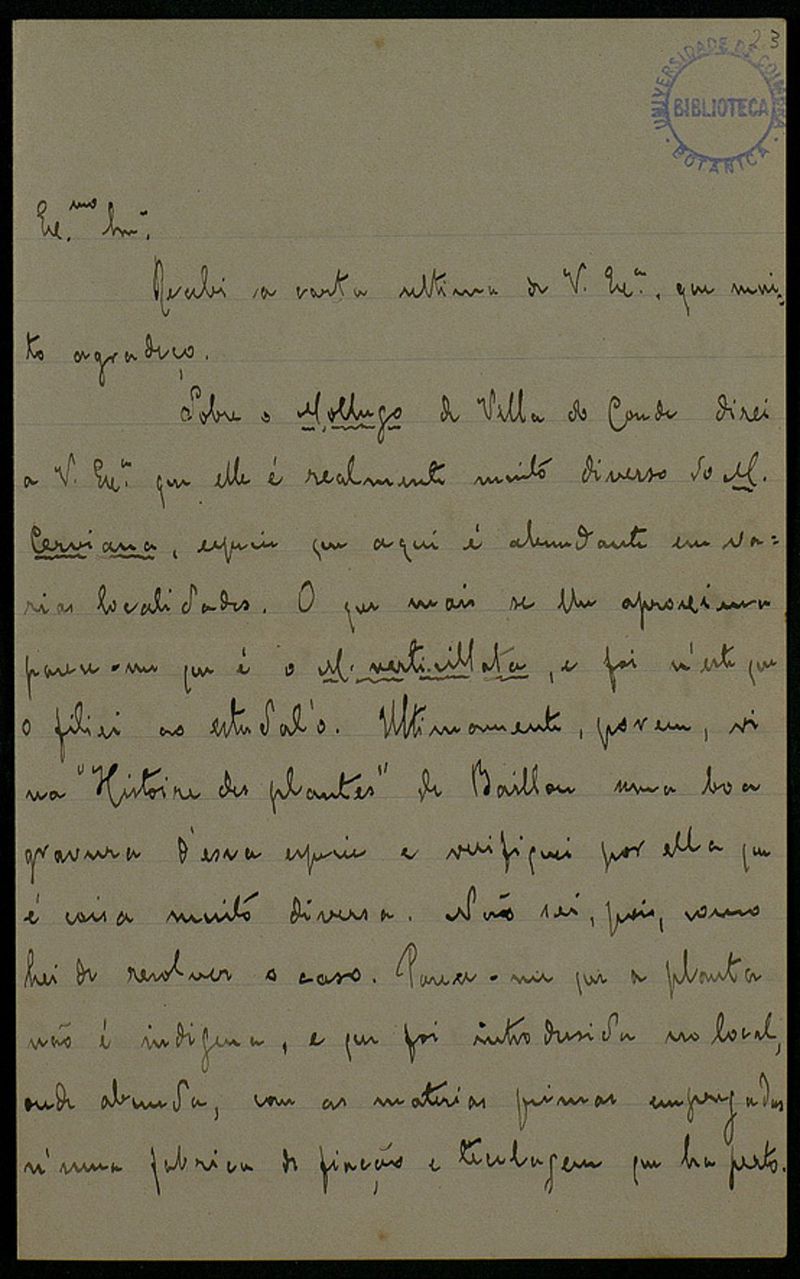 23
UNIVERSIDADE DE COIMBRA
BIBLIOTECA
BOTANICA
Ex.mo Snr.
Recebi a carta ultima de V. Ex.a, que mui-
to agradeço.
Sobre o Mollugo de Villa do Conde direi
a V. Ex.a que elle é realmente muito diverso do M.
Cerviana, especie que aqui é abundante em va=
rias localidades. O que mais se lhe aproxima
parece-me que é o M. verticillata, e foi n'este que
o filiei ao estudal'o. Ultimamente, porem, vi
na "Histoire des plantes" de Baillon uma boa
gravura d'essa especie e verifiquei por ella que
é coisa muito diversa. Não sei, pois, como
hei de resolver o caso. Parece-me que a planta
não é indigena, e que foi introdusida no local,
onde abunda, com as materias primas empregadas
n'uma fabrica de fiação e tecelagem que ha perto.